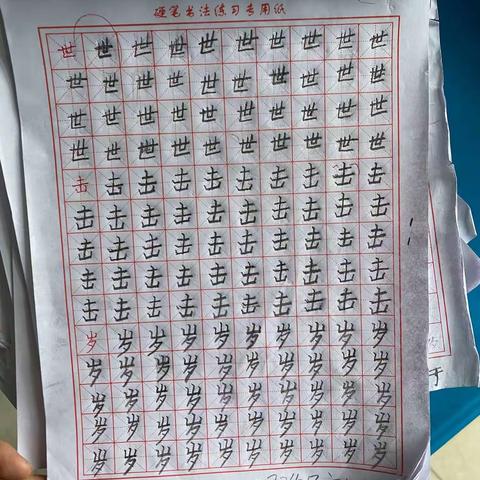 硬笔书法练习专用纸
世世世世世世世世世世
世世世世世世世世世世
世世世世世世世世世世
世世世世世世世世世世
击击击击击击击击击击
击击击击击击击击击击
击击击击击击击击击击
击击击击击击击击击击
击击击击击击击击击击
岁岁岁岁岁岁岁岁岁岁
岁岁岁岁岁岁岁岁岁岁
岁岁岁岁岁岁岁岁岁岁
岁岁岁岁岁岁岁岁岁岁
岁岁岁岁岁岁岁岁岁岁